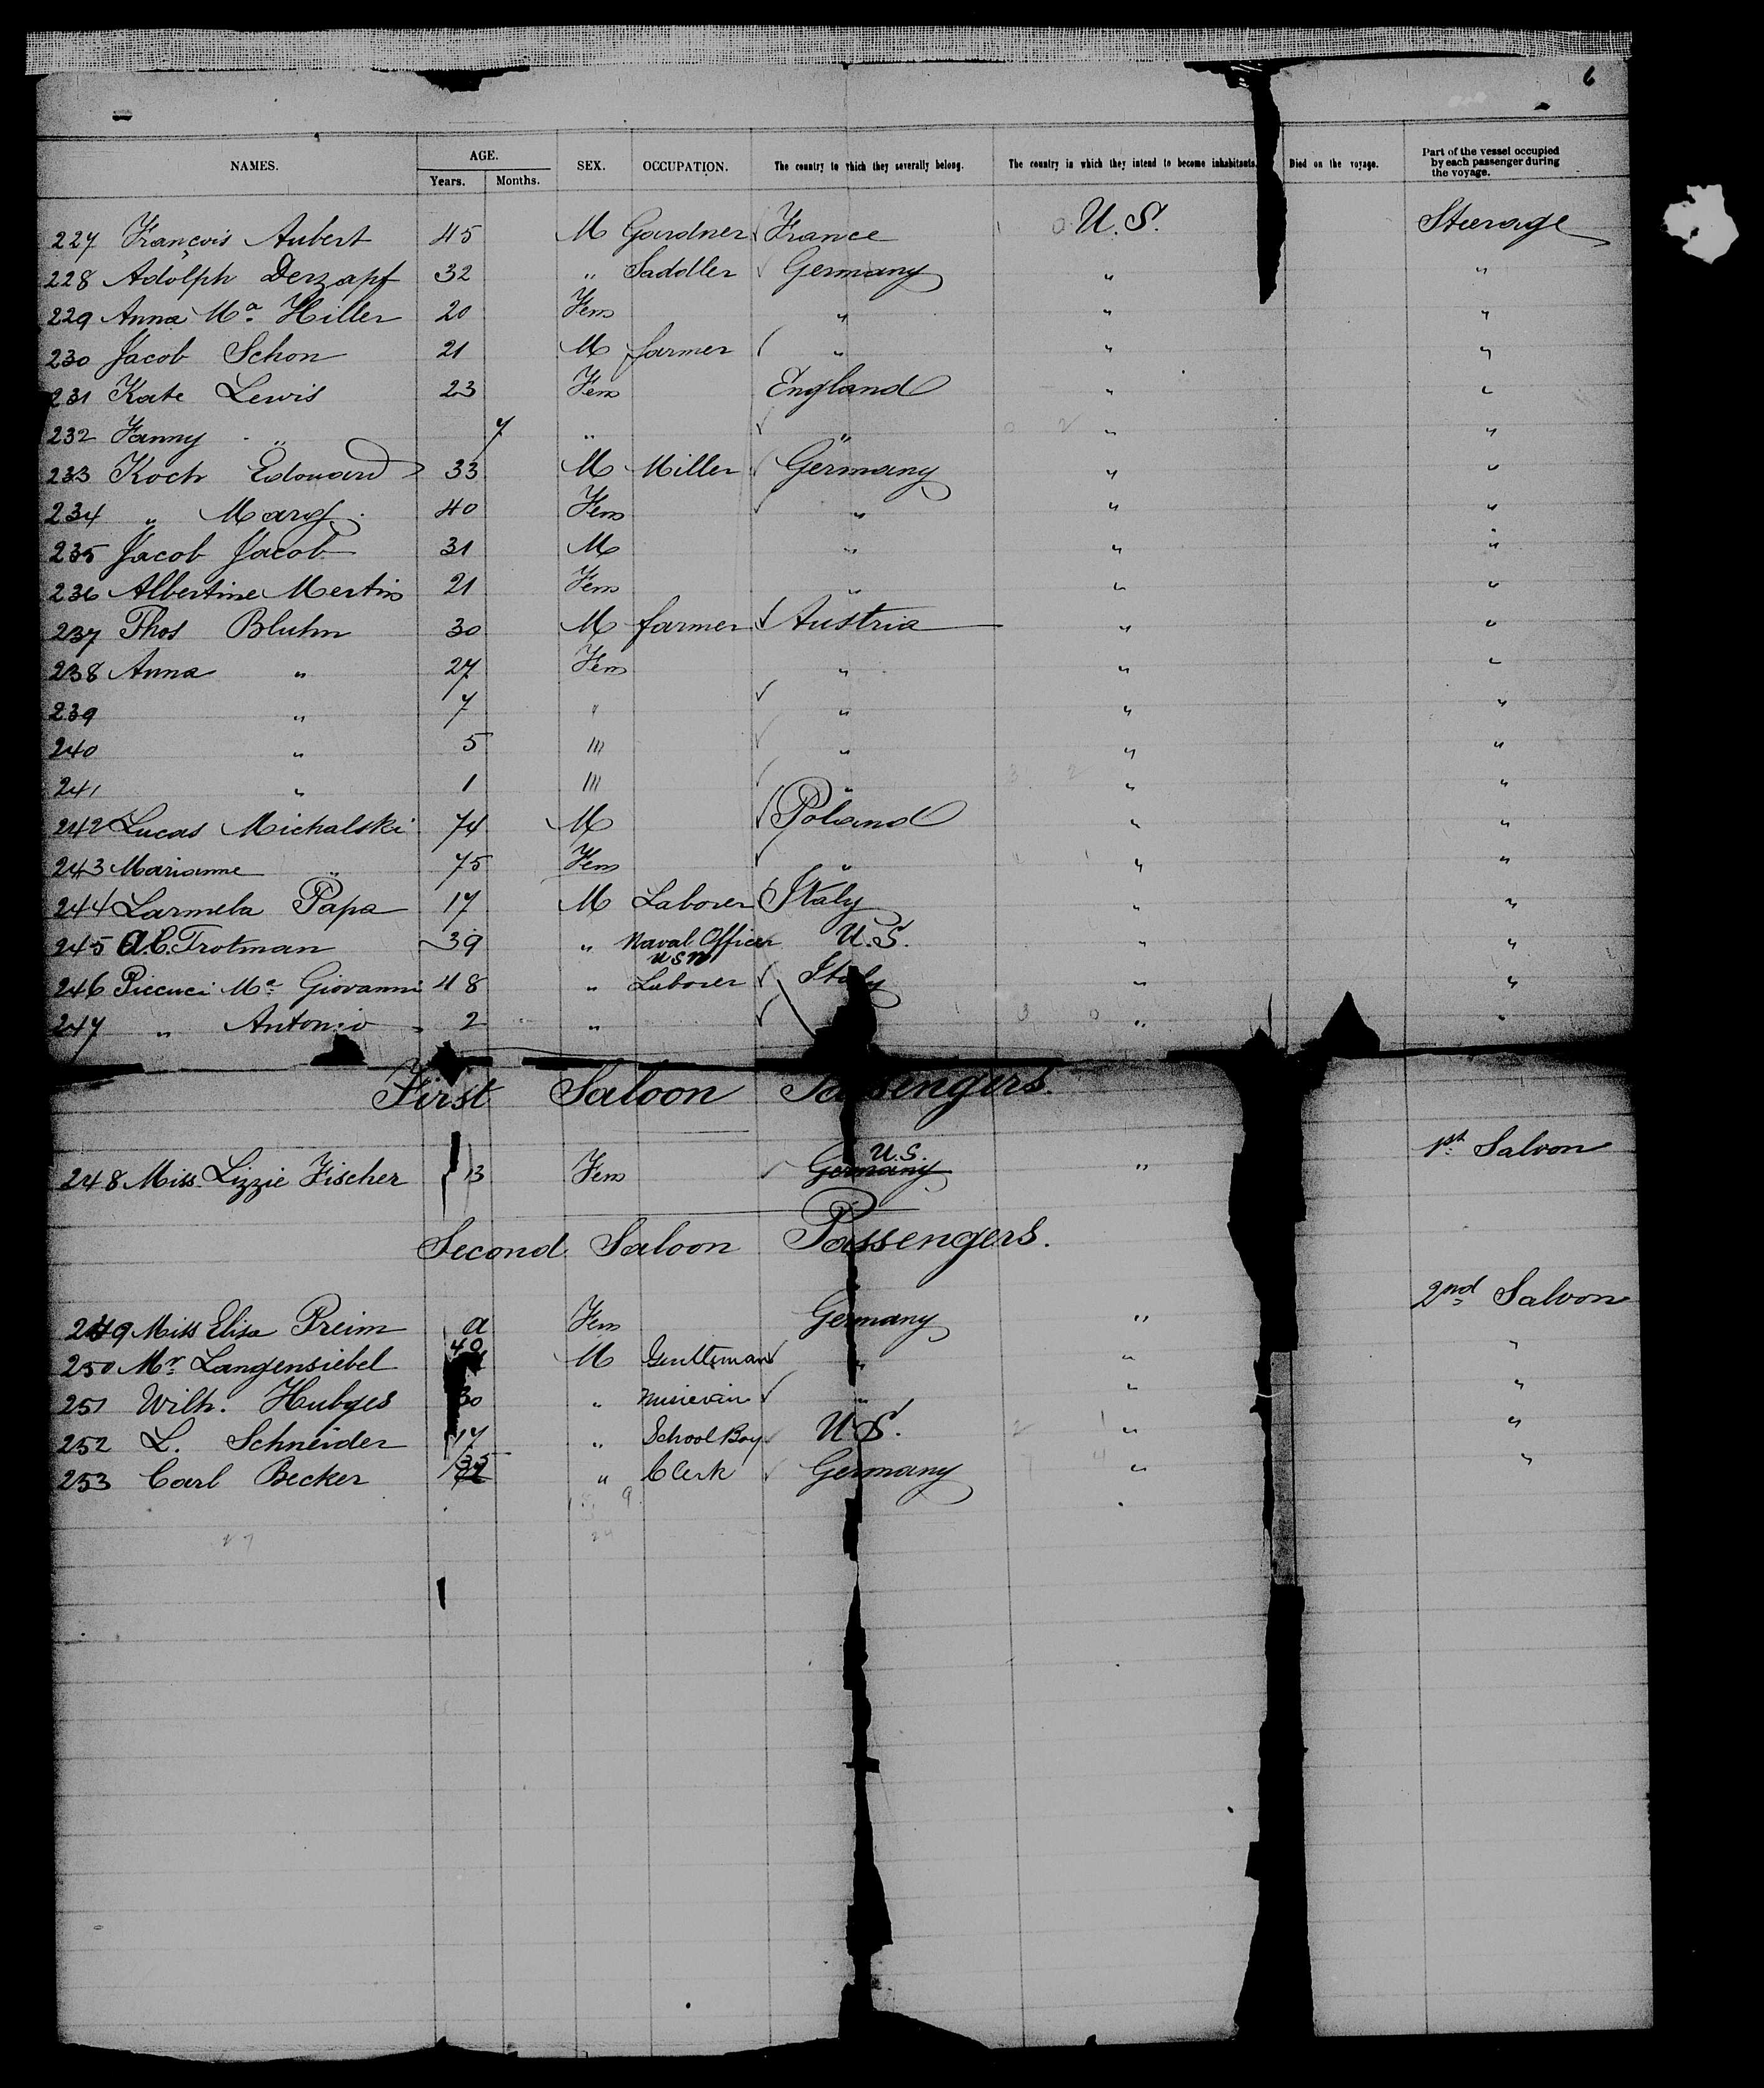 6
NAMES. AGE. Years. Months. SEX. OCCUPATION. The country to which they severally belong. The country in which they intend to become inhabitants. Died on the voyage. Part of the vessel occupied by each passenger during the voyage.
227 François Aubert 45 M Gardner France U.S. Steerage
228 Adolph Derzapf 32 " Saddler Germany " "
229 Anna Ma. Hiller 20 Fem " " "
230 Jacob Schon 21 M farmer " " "
231 Kate Lewis 23 Fem England " "
232 Fanny " 7 " " " "
233 Koch Edouard 33 M Miller Germany " "
234 " Marg. 40 Fem " " "
235 Jacob Jacob 31 M " " "
236 Albertine Mertin 21 Fem " " "
237 Thos Bluhm 30 M farmer Austria " "
238 Anna " 27 Fem " " "
239 " 7 " " " "
240 " 5 "' " " "
241 " 1 "' " " "
242 Lucas Michalski 74 M Poland " "
243 Marianne " 75 Fem " " "
244 Larmela Papa 17 M Laborer Italy " "
245 A.C. Trotman 39 " Naval Officer USN U.S. " "
246 Piccuci Ma. Giovanni 48 " Laborer Italy " "
247 " Antonio 2 " " "
First Saloon Passengers.
248 Miss. Lizzie Fischer 13 Fem Germany U.S. " 1st Saloon
Second Saloon Passengers.
249 Miss Elisa Preim a Fem Germany " 2nd Saloon
250 Mr. Langensiebel 40 M Gentleman " " "
251 Wilh. Hubges 30 " Musician " " "
252 L. Schneider 17 " School Boy U.S. " "
253 Carl Becker 35 " Clerk Germany " "